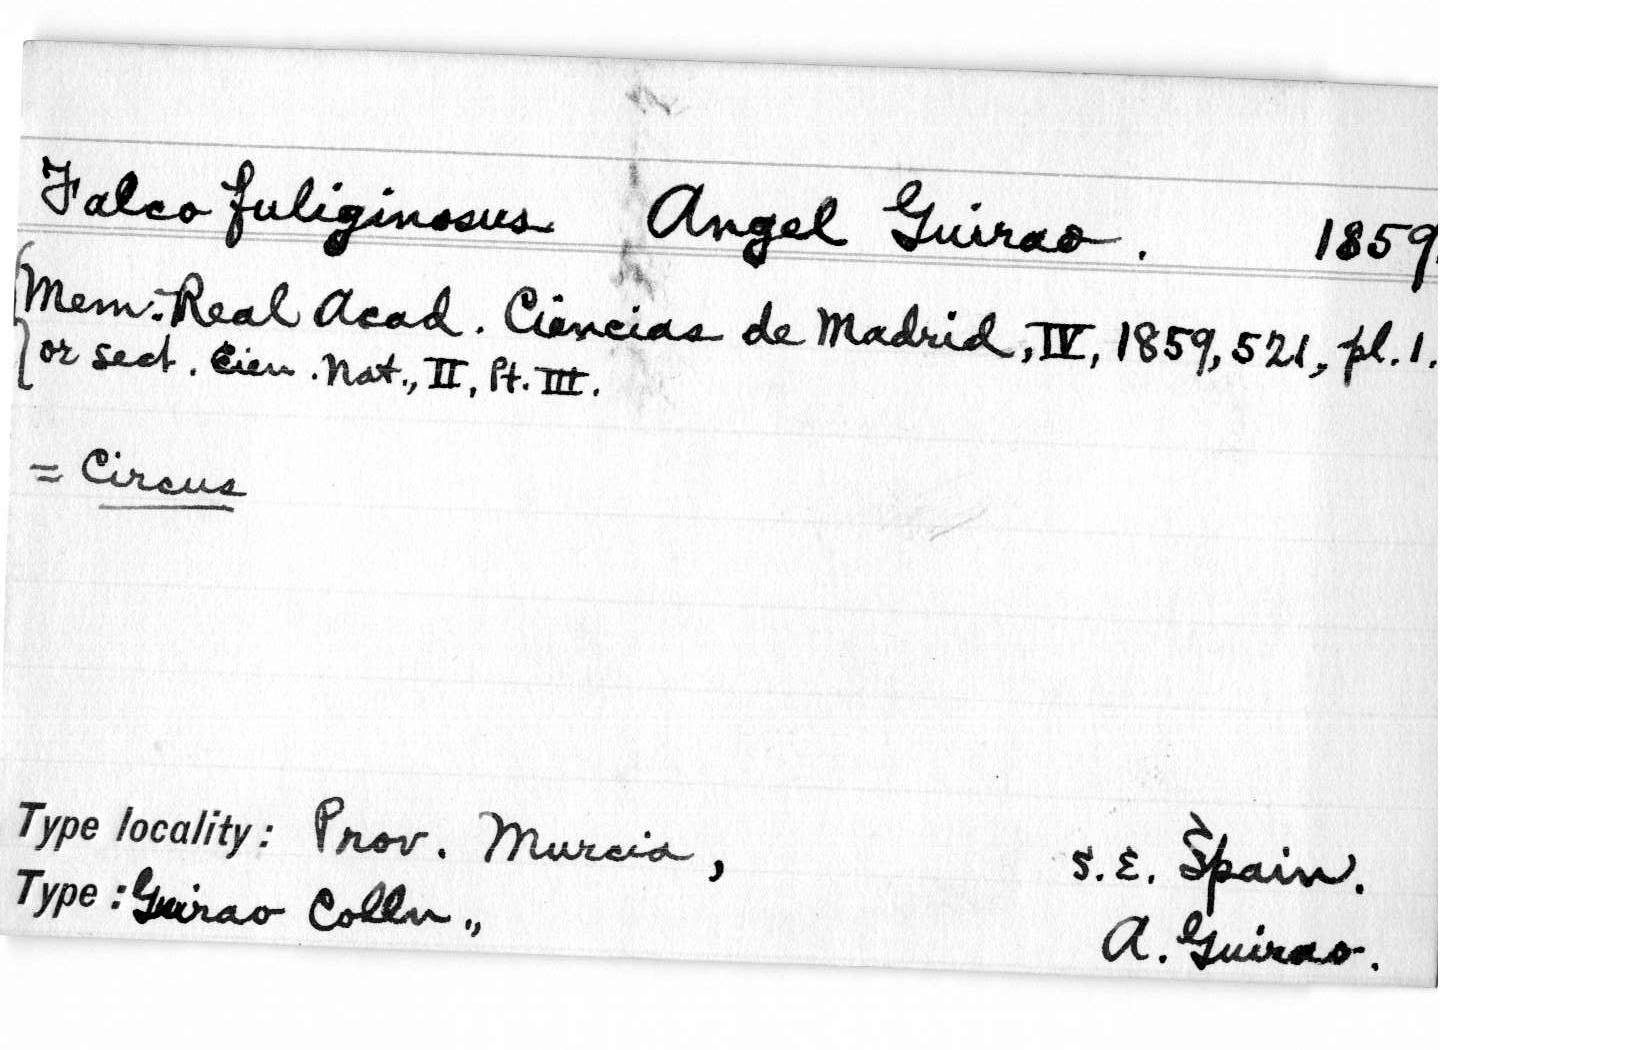 Falco fuliginosus Angel Guirao. 1859.
Mem. Real Acad. Ciencias de Madrid, IV, 1859, 521, pl. 1.
or sect. Cien. Nat., II, Pt. III.
= Circus
Type locality: Prov. Murcia, S. E. Spain.
Type: Guirao Colln., A. Guirao.